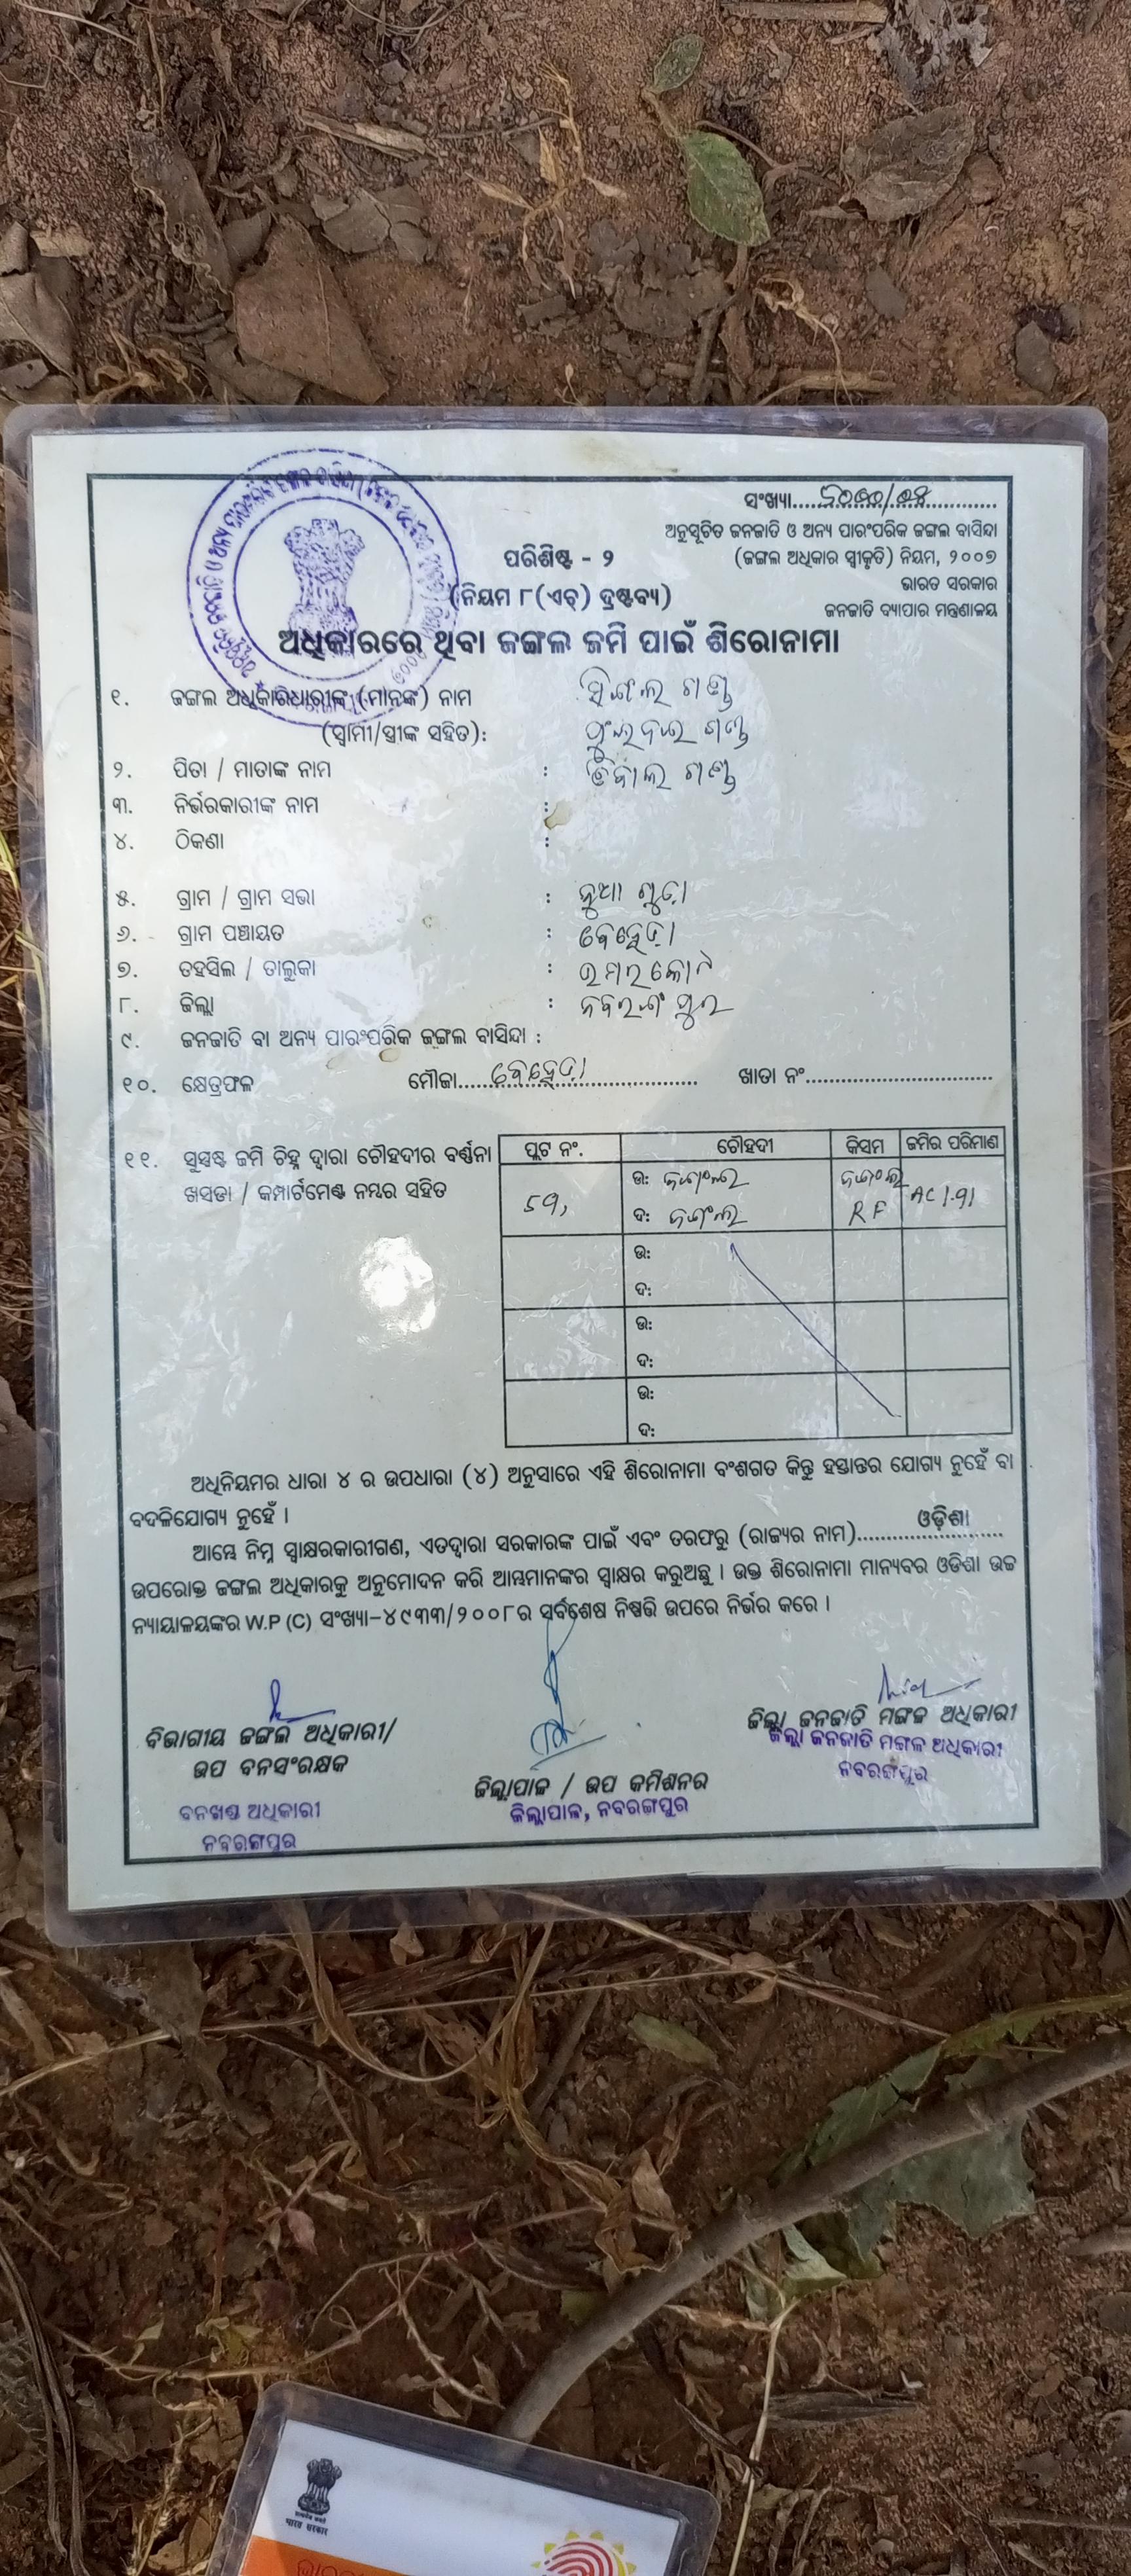 ସଂଖ୍ୟା
ଅନୁସୂଚିତ ଜନଜାତି ଓ ଅନ୍ୟ ପାରଂପରିକ ଜଙ୍ଗଲ ବାସିନ୍ଦା
(ଜଙ୍ଗଲ ଅଧିକାର ସ୍ୱୀକୃତି) ନିୟମ, ୨୦୦୭
ଭାରତ ସରକାର
ଜନଜାତି ବ୍ୟାପାର ମନ୍ତ୍ରଣାଳୟ
ପରିଶିଷ୍ଟ - ୨
(ନିୟମ ୮(ଏଚ୍) ଦ୍ରଷ୍ଟବ୍ୟ)
ଅଧିକାରରେ ଥିବା ଜଙ୍ଗଲ ଜମି ପାଇଁ ଶିରୋନାମା
୧. ଜଙ୍ଗଲ ଅଧିକାରଧାରୀଙ୍କ (ମାନଙ୍କ) ନାମ
(ସ୍ୱାମୀ/ସ୍ତ୍ରୀଙ୍କ ସହିତ):
୨. ପିତା / ମାତାଙ୍କ ନାମ :
୩. ନିର୍ଭରକାରୀଙ୍କ ନାମ :
୪. ଠିକଣା :
୫. ଗ୍ରାମ / ଗ୍ରାମ ସଭା : ନୁଆ ଗୁଡ଼ା
୬. ଗ୍ରାମ ପଞ୍ଚାୟତ : ବେହେଡ଼ା
୭. ତହସିଲ / ତାଲୁକା : ଉମରକୋଟ
୮. ଜିଲ୍ଲା : ନବରଙ୍ଗପୁର
୯. ଜନଜାତି ବା ଅନ୍ୟ ପାରଂପରିକ ଜଙ୍ଗଲ ବାସିନ୍ଦା :
୧୦. କ୍ଷେତ୍ରଫଳ ମୌଜା.....ବେହେଡ଼ା..... ଖାତା ନଂ.....
୧୧. ସୁସ୍ପଷ୍ଟ ଜମି ଚିହ୍ନ ଦ୍ୱାରା ଚୌହଦୀର ବର୍ଣ୍ଣନା
ଖସଡା / କମ୍ପାର୍ଟମେଣ୍ଟ ନମ୍ବର ସହିତ
ପ୍ଲଟ ନଂ. ଚୌହଦୀ କିସମ ଜମିର ପରିମାଣ
ଉ: ଜଙ୍ଗଲ ଜଙ୍ଗଲ
59, ଦ: ଜଙ୍ଗଲ RF AC 1.91
ଉ:
ଦ:
ଉ:
ଦ:
ଉ:
ଦ:
ଅଧିନିୟମର ଧାରା ୪ ର ଉପଧାରା (୪) ଅନୁସାରେ ଏହି ଶିରୋନାମା ବଂଶଗତ କିନ୍ତୁ ହସ୍ତାନ୍ତର ଯୋଗ୍ୟ ନୁହେଁ ବା
ବଦଳିଯୋଗ୍ୟ ନୁହେଁ ।
ଆମ୍ଭେ ନିମ୍ନ ସ୍ୱାକ୍ଷରକାରୀଗଣ, ଏତଦ୍ୱାରା ସରକାରଙ୍କ ପାଇଁ ଏବଂ ତରଫରୁ (ରାଜ୍ୟର ନାମ).....ଓଡ଼ିଶା.....
ଉପରୋକ୍ତ ଜଙ୍ଗଲ ଅଧିକାରକୁ ଅନୁମୋଦନ କରି ଆମ୍ଭମାନଙ୍କର ସ୍ୱାକ୍ଷର କରୁଅଛୁ । ଉକ୍ତ ଶିରୋନାମା ମାନ୍ୟବର ଓଡିଶା ଉଚ୍ଚ
ନ୍ୟାୟାଳୟଙ୍କର W.P (C) ସଂଖ୍ୟା-୪୯୩୩/୨୦୦୮ର ସର୍ବଶେଷ ନିଷ୍ପତ୍ତି ଉପରେ ନିର୍ଭର କରେ ।
ବିଭାଗୀୟ ଜଙ୍ଗଲ ଅଧିକାରୀ/
ଉପ ବନସଂରକ୍ଷକ
ବନଖଣ୍ଡ ଅଧିକାରୀ
ନବରଙ୍ଗପୁର
ଜିଲ୍ଲାପାଳ / ଉପ କମିଶନର
ଜିଲ୍ଲାପାଳ, ନବରଙ୍ଗପୁର
ଜିଲ୍ଲା ଜନଜାତି ମଙ୍ଗଳ ଅଧିକାରୀ
ଜିଲ୍ଲା ଜନଜାତି ମଙ୍ଗଳ ଅଧିକାରୀ
ନବରଙ୍ଗପୁର
भारत सरकार